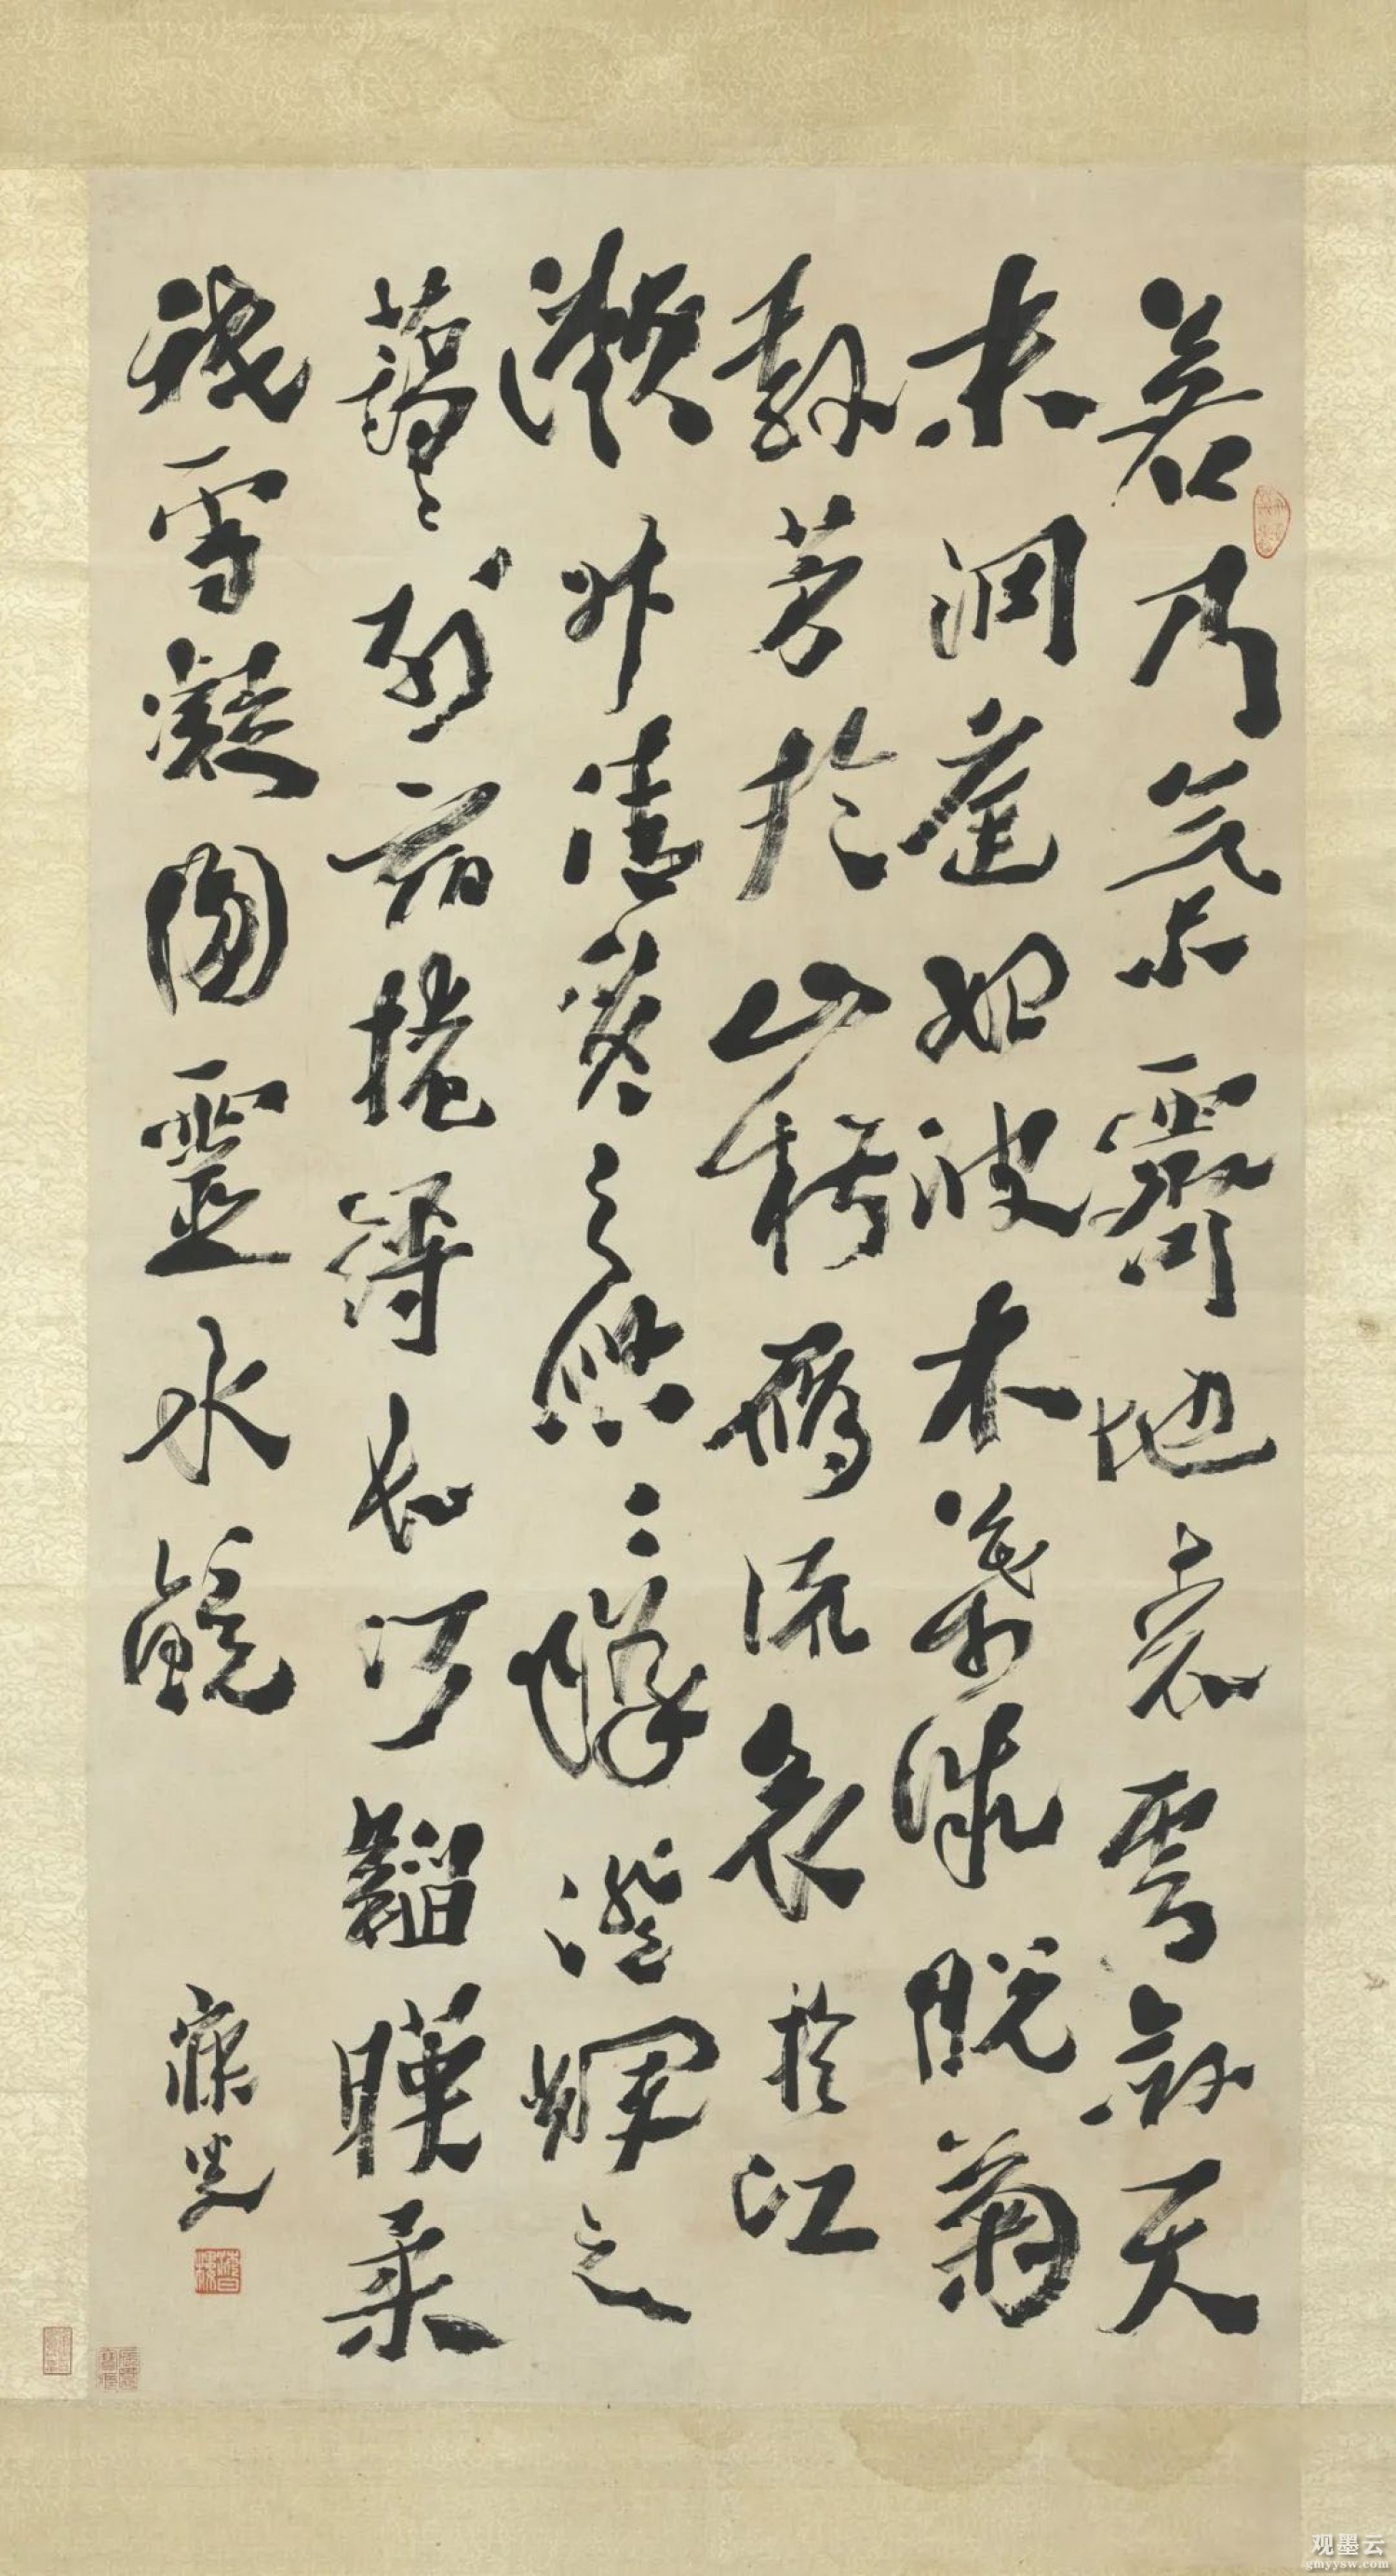 若乃氣霽地表雲斂天
末洞庭始波木葉微脫菊
散芳於山椒雁流哀於江
瀨升清質之悠々降澄輝之
藹々列宿掩縟長河韜暎柔
祇雪凝圓靈水鏡
寐叟
观墨云
gmyysw.com